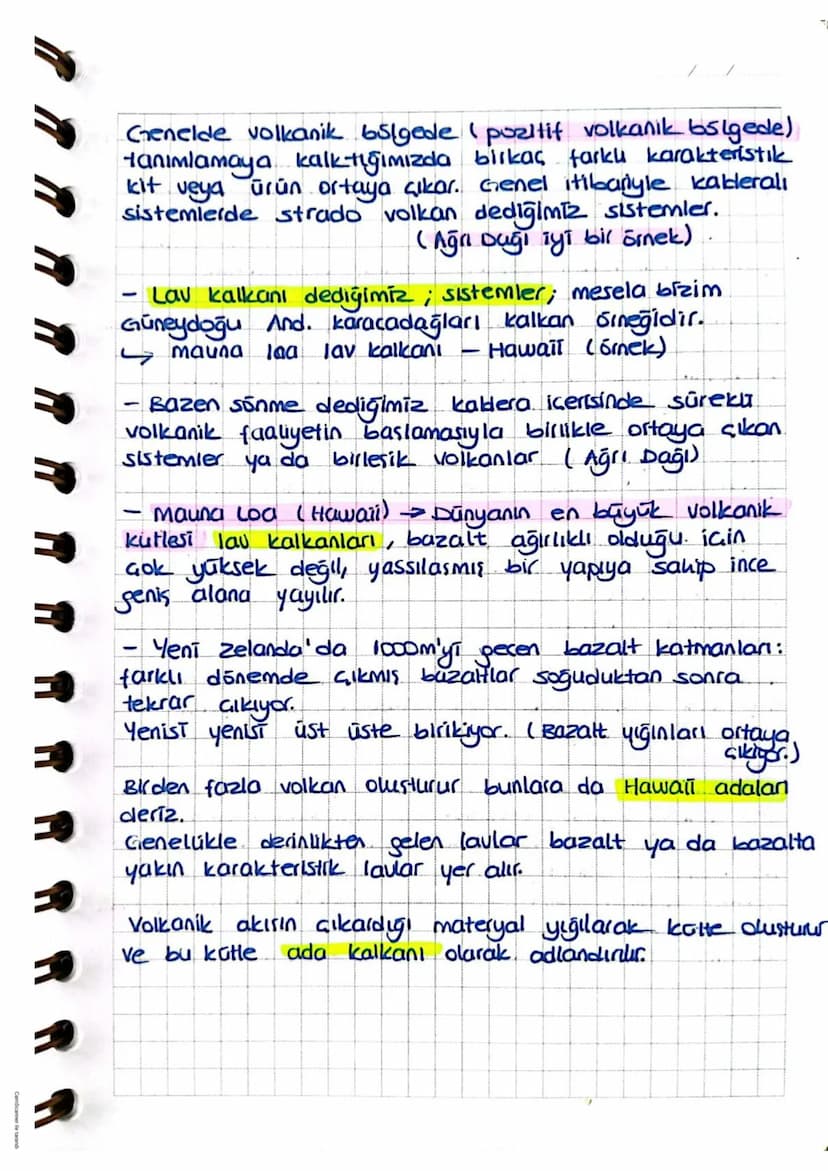 / /
Genelde volkanik bölgede (pozitif volkanik bölgede)
tanımlamaya kalktığımızda birkaç farklı karakteristik
kit veya ürün ortaya çıkar. Genel itibariyle kalderalı
sistemlerde strado volkan dediğimiz sistemler.
(Ağrı Dağı iyi bir örnek).
- Lav kalkanı dediğimiz ; sistemler; mesela bizim
Güneydoğu And. karacadağları kalkan örneğidir.
↳ mauna loa lav kalkanı - Hawaii (örnek)
- Bazen sönme dediğimiz kaldera içerisinde sürekli
volkanik faaliyetin başlamasıyla birlikle ortaya çıkan
sistemler ya da birleşik volkanlar ( Ağrı Dağı)
- Mauna Loa (Hawaii) → Dünyanın en büyük volkanik
kütlesi lav kalkanları, bazalt ağırlıklı olduğu için
çok yüksek değil, yassılaşmış bir yapıya sahip ince
geniş alana yayılır.
- Yeni Zelanda'da 1000m'yi geçen bazalt katmanları:
farklı dönemde çıkmış bazaltlar soğuduktan sonra
tekrar çıkıyor.
Yenisi yenisi üst üste birikiyor. (Bazalt yığınları ortaya
çıkıyor.)
Birden fazla volkan oluşturur bunlara da Hawaii adaları
deriz.
Genellikle derinlikten gelen lavlar bazalt ya da bazalta
yakın karakteristik lavlar yer alır.
Volkanik akışın çıkardığı materyal yığılarak kütle oluşturur
ve bu kütle ada kalkanı olarak adlandırılır.
CamScanner ile tarandı